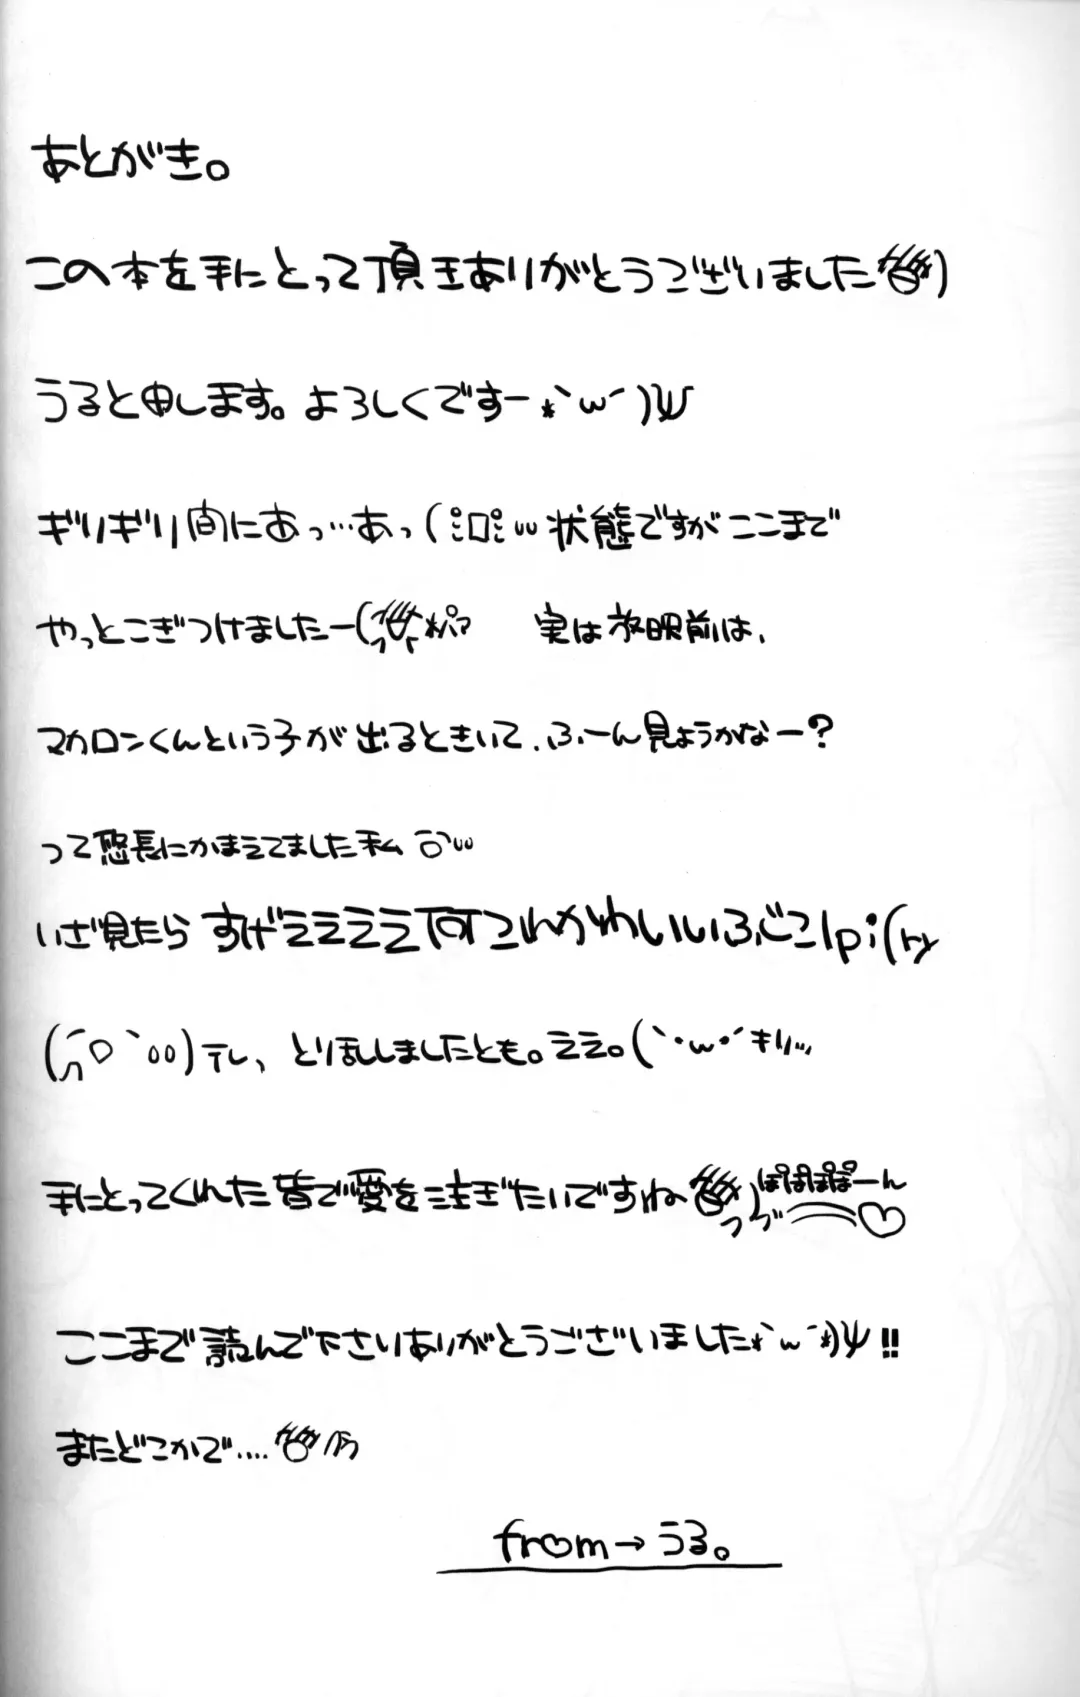 あとがき。
この本を手にとって頂きありがとうございました
うると申します。よろしくですー*`ω´)ψ
ギリギリ間にあっ…あっ( 状態ですがここまで
やっとこぎつけましたー( 実は放映前は、
マカロンくんという子が出るときいて、ふーん見ようかなー?
って悠長にかまえてました私
いざ見たらすげええええ何これかわいいいふじこlp;(ry
テレ、とりみだしましたとも。ええ。(`・ω・´キリッ
手にとってくれた皆で愛を注ぎたいですね ぽぽぽぽーん
ここまで読んで下さりありがとうございました*`ω´*)ψ!!
またどこかで....
from→うる。